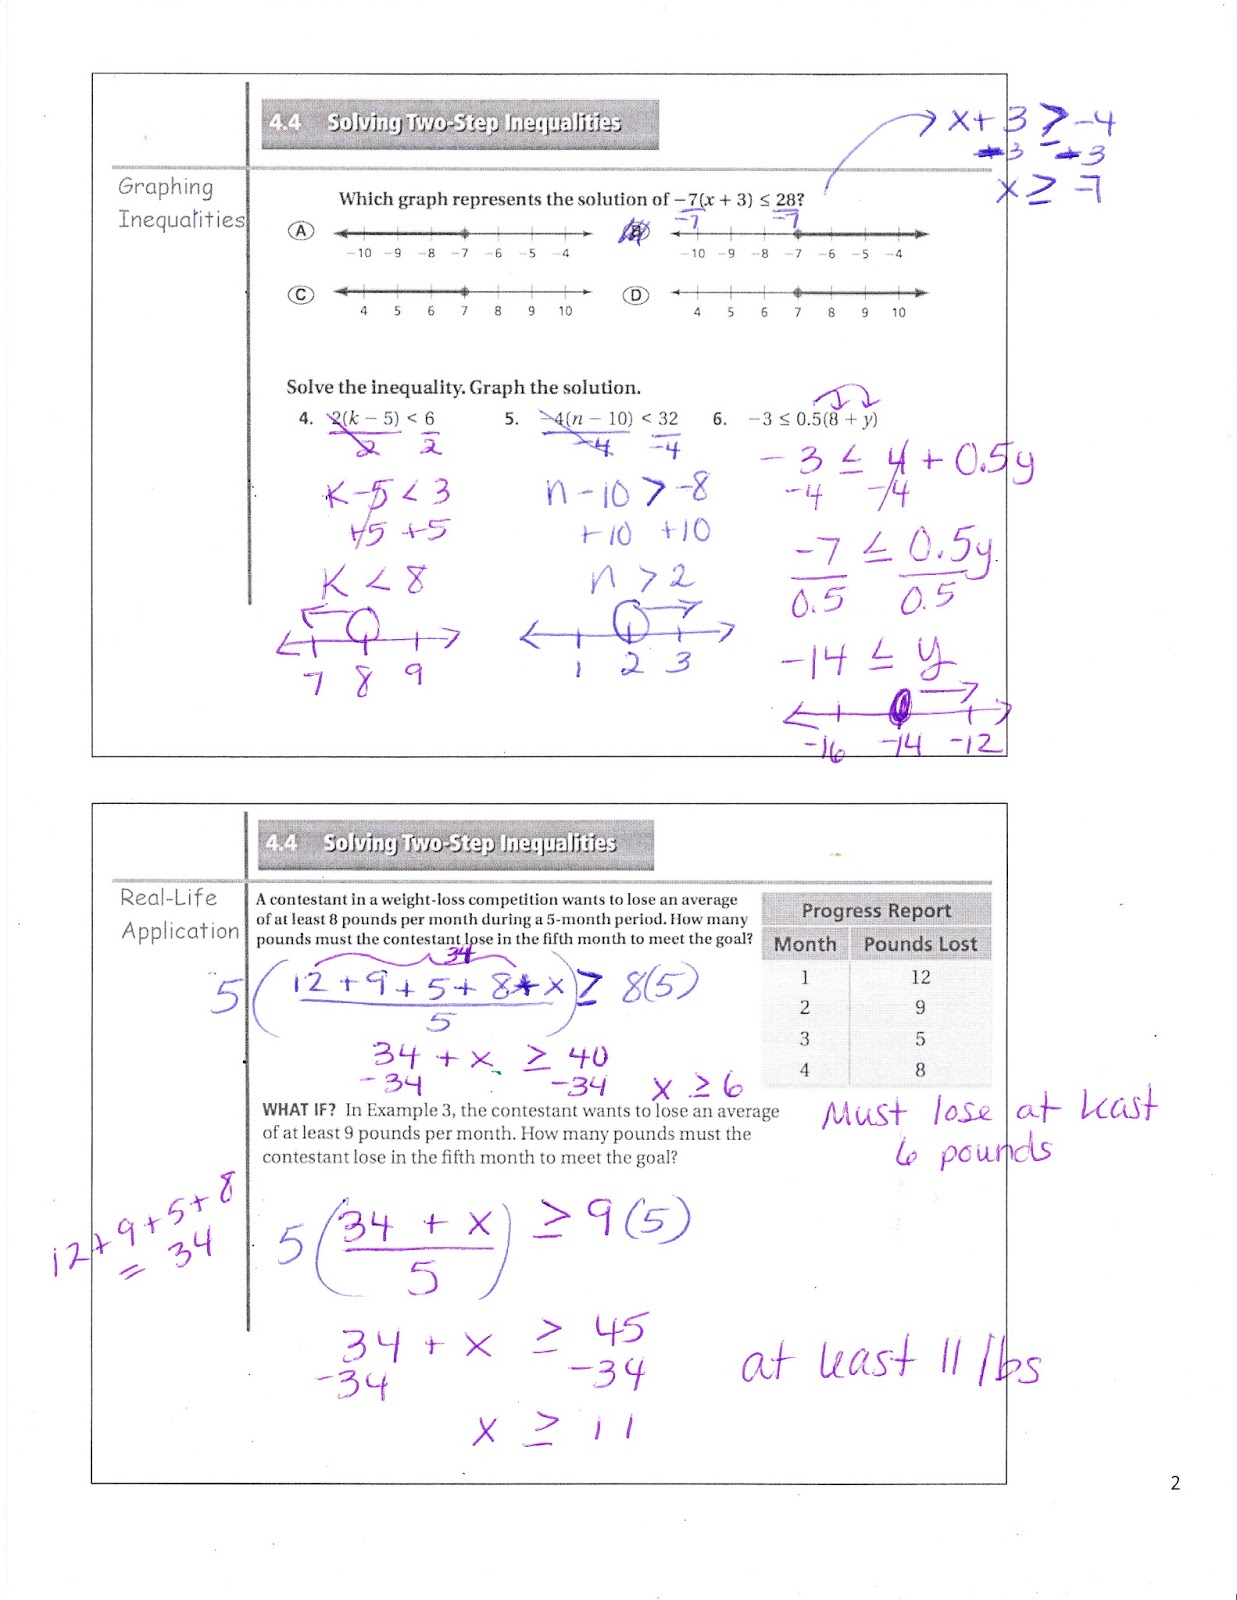 4.4 Solving Two-Step Inequalities
x + 3 ≥ -4
-3 -3
x ≥ -7
Graphing
Inequalities
Which graph represents the solution of −7(x + 3) ≤ 28?
-7 -7
A
B
-10 -9 -8 -7 -6 -5 -4
-10 -9 -8 -7 -6 -5 -4
C
D
4 5 6 7 8 9 10
4 5 6 7 8 9 10
Solve the inequality. Graph the solution.
4. 2(k − 5) < 6
5. −4(n − 10) < 32
6. −3 ≤ 0.5(8 + y)
2 2
-4 -4
-3 ≤ 4 + 0.5y
K-5 < 3
n-10 > -8
-4 -4
+5 +5
+10 +10
-7 ≤ 0.5y
K < 8
n > 2
0.5 0.5
-14 ≤ y
7 8 9
1 2 3
-16 -14 -12
4.4 Solving Two-Step Inequalities
Real-Life
Application
A contestant in a weight-loss competition wants to lose an average
of at least 8 pounds per month during a 5-month period. How many
pounds must the contestant lose in the fifth month to meet the goal?
Progress Report
Month Pounds Lost
1 12
2 9
3 5
4 8
34
5(12+9+5+8+x) ≥ 8(5)
5
34 + x ≥ 40
-34 -34 x ≥ 6
Must lose at least
6 pounds
WHAT IF? In Example 3, the contestant wants to lose an average
of at least 9 pounds per month. How many pounds must the
contestant lose in the fifth month to meet the goal?
12+9+5+8
= 34
5(34 + x) ≥ 9(5)
5
34 + x ≥ 45
-34 -34
at least 11 lbs
x ≥ 11
2